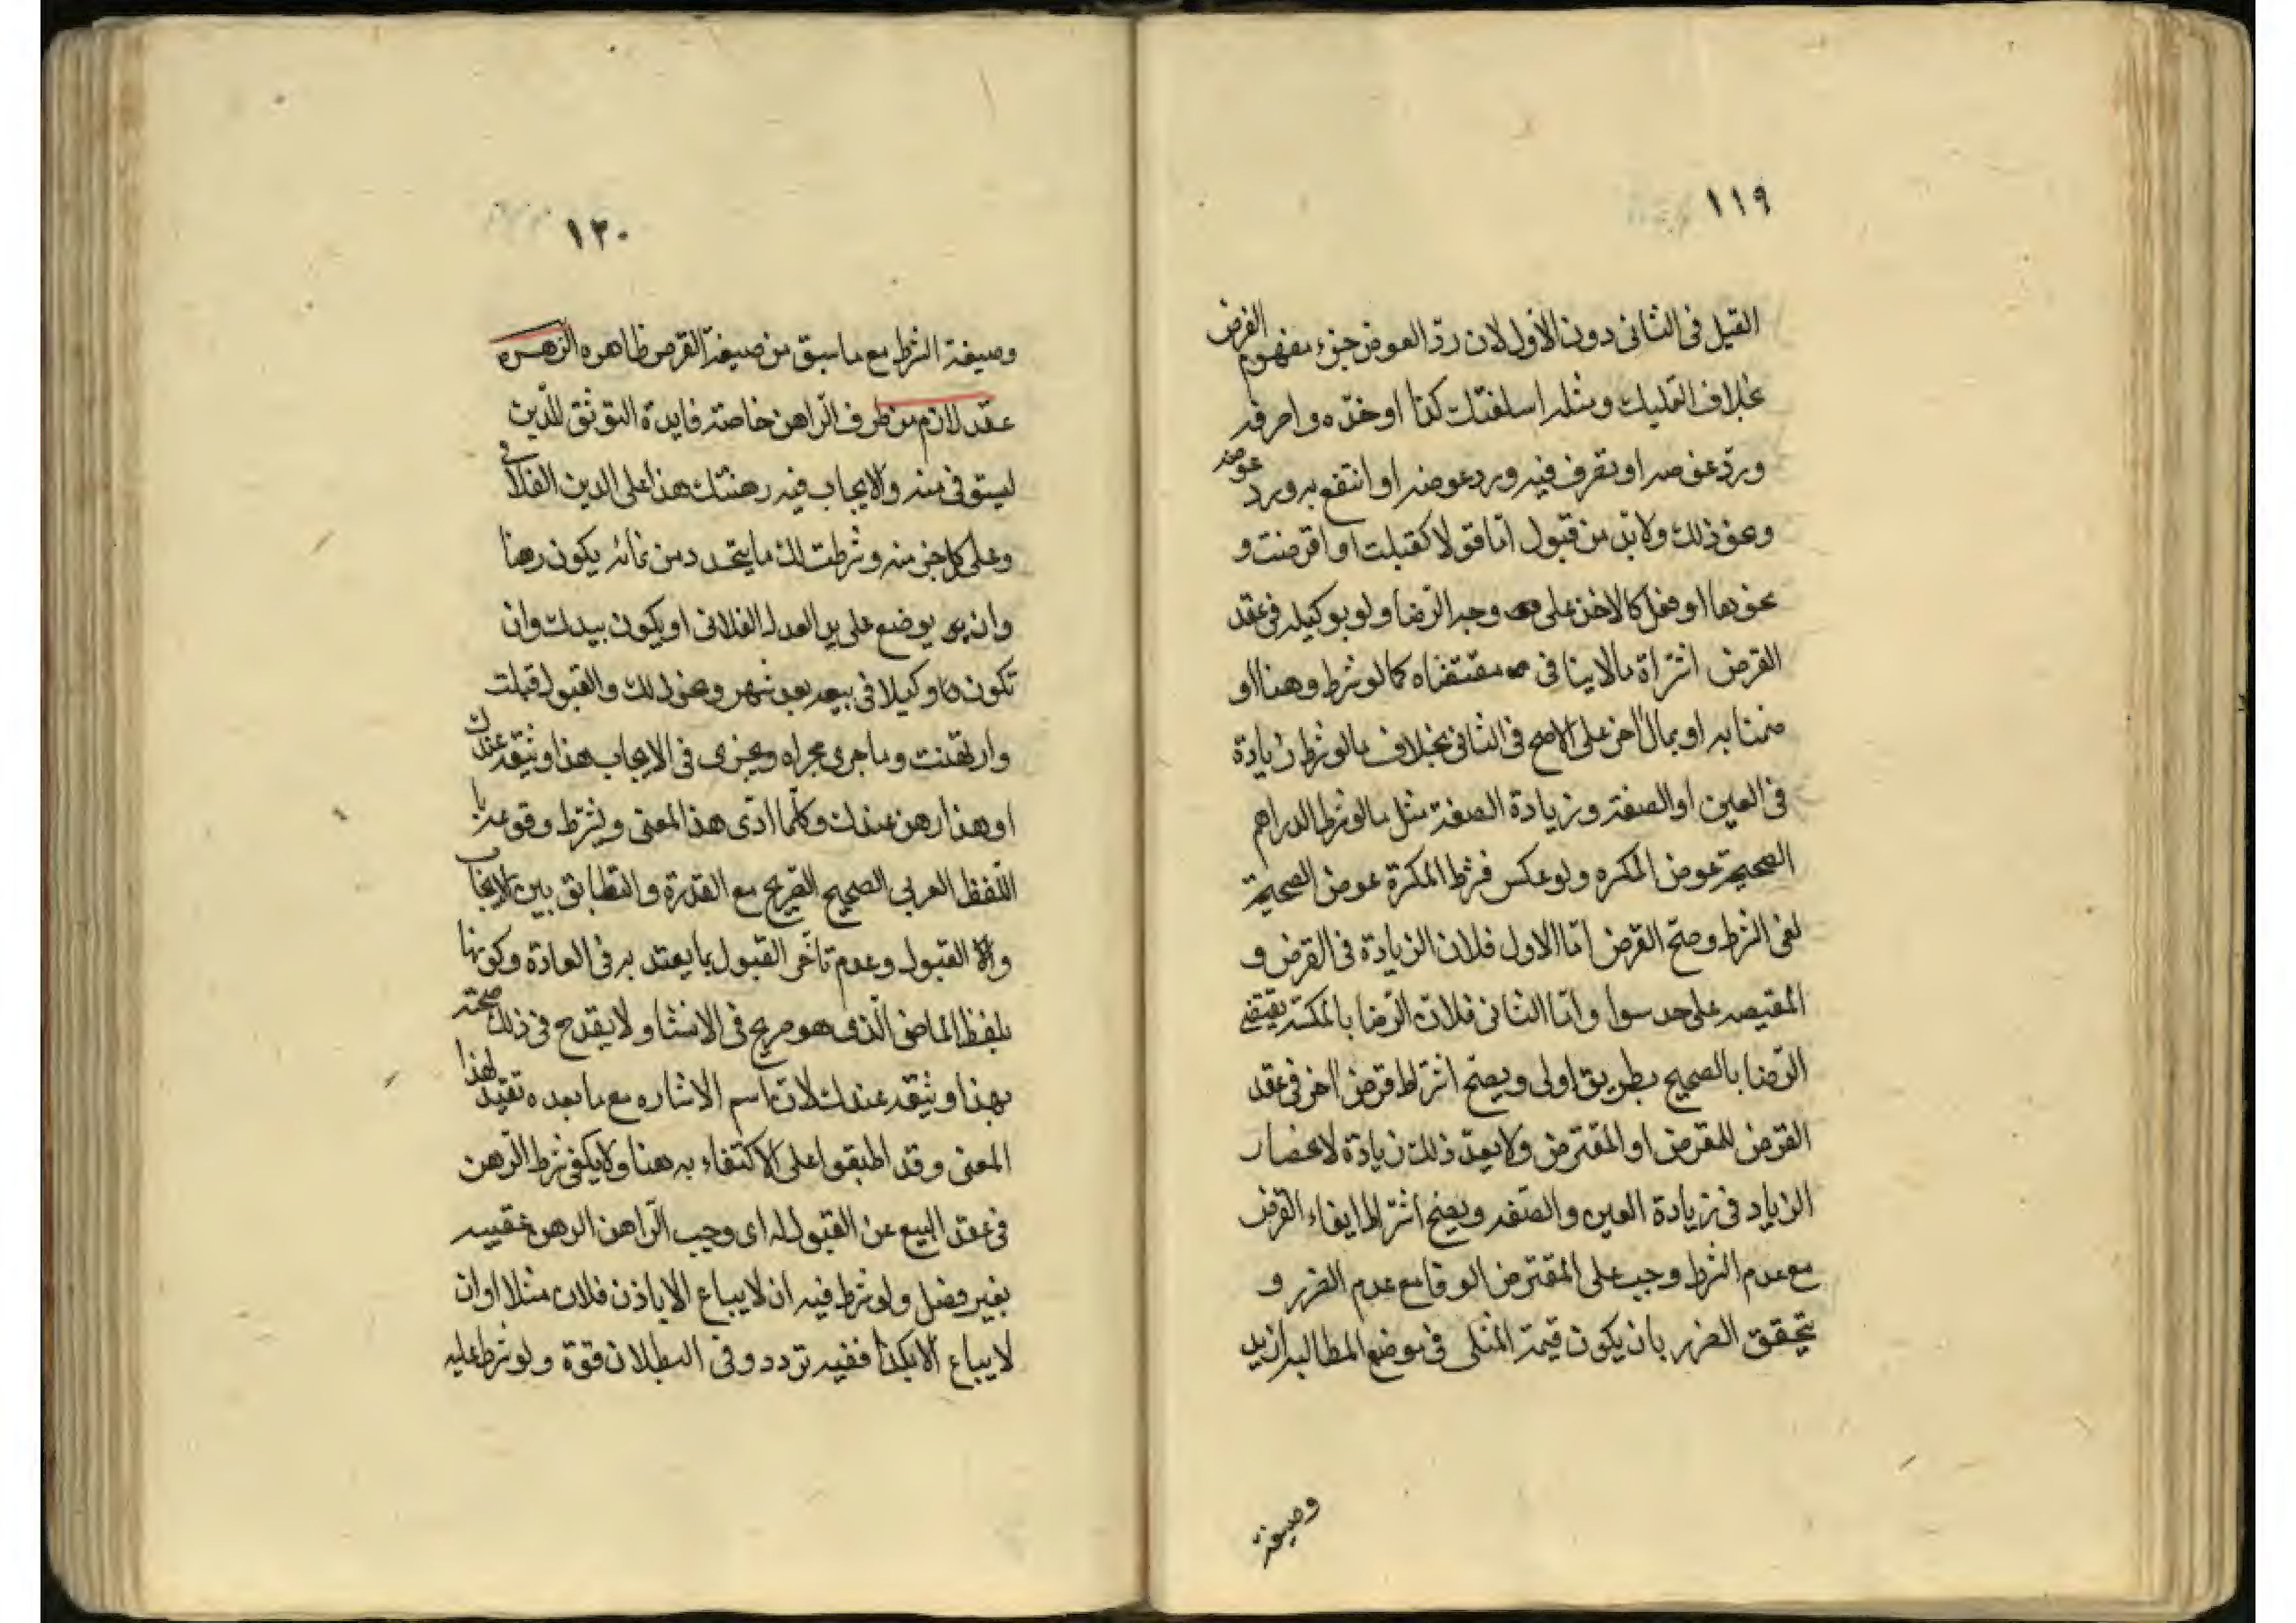 ١١٩
القيل فى الثانى دون الأول لان ردّ العوض جزء مفهوم القرض
بخلاف التمليك ومثله اسلفتك كذا او خذه واصرفه
وردّ عوضه او تصرف فيه ورد عوضه او انتفع به ورد عوضه
ونحو ذلك ولابدّ من قبول امّا قولا كقبلت او اقرضت و
نحوهما او فعل كالاخذ على وجه الرّضا ولو بوكيله فى عقد
القرض اشتراة مالاينافى مقتضاه كما لو شرط رهنا او
ضمنا به او بمال اخر على الاصح فى الثانى بخلاف مالو شرط زيادة
فى العين او الصفة وزيادة الصفة مثل مالو شرط الدراهم
الصحيحة عوض المكسره ولو عكس فشرط المكسرة عوض الصحيحة
لغى الشرط وصحّ القرض امّا الاول فلان الزيادة فى القرض و
المقيصه على حد سوا وامّا الثانى فلانّ الرّضا بالمكسّر يقتضى
الرّضا بالصحيح بطريق اولى ويصحّ اشتراط قرض اخر فى عقد
القرض للمقرض او المقترض ولايعدّ ذلك زيادة لانحصار
الزياد فى زيادة العين والصّفه ويصح اشتراط ايفاء القرض
مع عدم الشرط وجب على المقترض الوفا مع عدم الضرر و
يتحقق الضرر بان يكون قيمة المثلى فى موضع المطالبه ازيد
وصيغة
١٢٠
وصيغة الشرط مع ما سبق من صيغة القرض ظاهره الرهن
عقد لازم من طرف الرّاهن خاصة فايدة التوثق للدّين
ليستوفى منه والايجاب فيه رهنتك هذا على الدين الفلانى
وعلى كل جزء منه وشرطت لك ما يتجدد من نمائه يكون رهنا
وان يوضع على يد العدل الفلانى او يكون بيدك وان
تكون وكيلا فى بيعه بعد شهر ونحو ذلك والقبول قبلت
وارتهنت وما جرى مجراه ويجزى فى الايجاب هذا وثيقه عندك
او هذا رهن عندك وكلّما ادّى هذا المعنى ويشترط وقوعه با
اللّفظ العربى الصحيح الصّريح مع القدرة والتطابق بين الايجاب
والقبول وعدم تاخّر القبول بما يعتد به فى العادة وكونها
بلفظ الماضى الّذى هو صريح فى الانشا ولا يقدح فى ذلك صحّته
بهذا وثيقه عندك لانّ اسم الاشاره مع ما بعده تفيد لهذا
المعنى وقد اطبقوا على الاكتفاء به هنا ولايكفى شرط الرّهن
فى عقد البيع عن القبول له اى وجب الرّاهن الرهن عقيبه
بغير فصل ولو شرط فيه ان لايباع الا باذن فلان مثلا او ان
لايباع الا بكذا ففيه تردد وفى البطلان قوة ولو شرط عليه